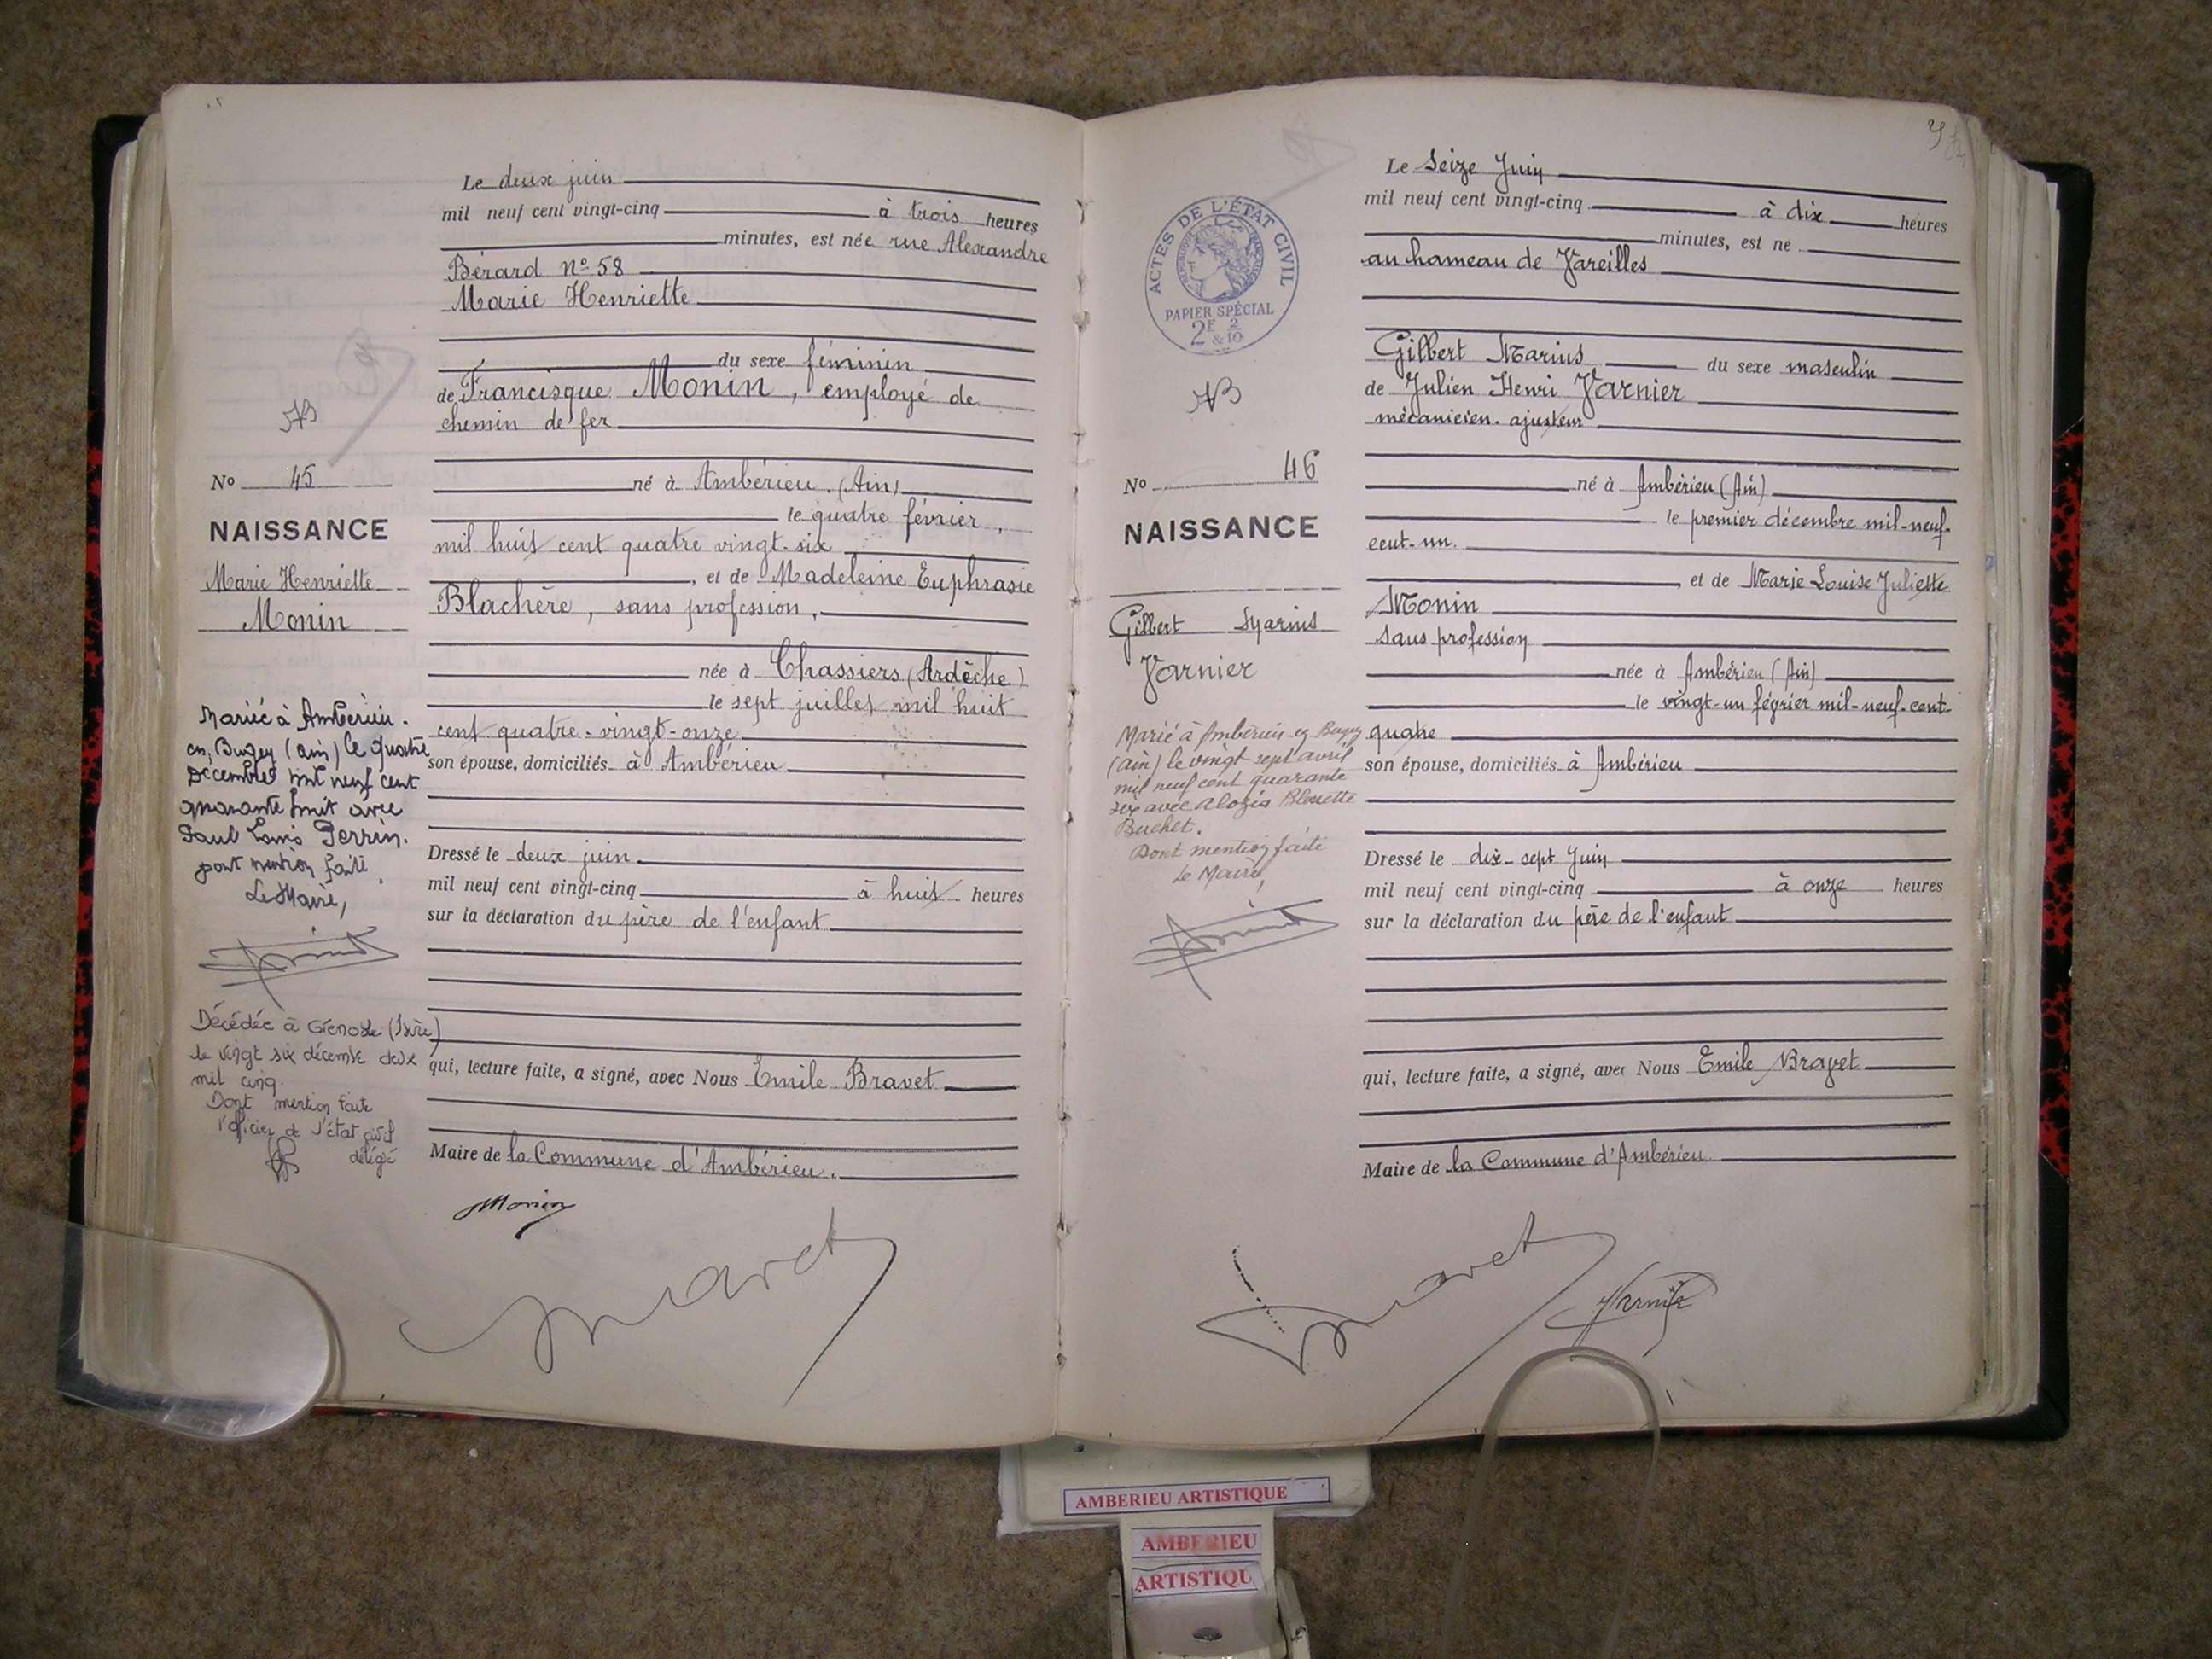 Le deux juin
mil neuf cent vingt-cinq à trois heures
minutes, est née rue Alexandre
Bérard nº 58
Marie Henriette
du sexe féminin
de Francisque Monin, employé de
chemin de fer
AB
No 45
NAISSANCE
Marie Henriette
Monin
né à Ambérieu (Ain)
le quatre février,
mil huit cent quatre vingt-six
, et de Madeleine Euphrasie
Blachère, sans profession,
née à Chassiers (Ardèche)
le sept juillet mil huit
cent quatre-vingt-onze
son épouse, domiciliés à Ambérieu
Mariée à Ambérieu-
en-Bugey (Ain) le quatre
Décembre mil neuf cent
quarante huit avec
Paul Louis Perrin.
Dont mention faite
Le Maire,
Dressé le deux juin
mil neuf cent vingt-cinq à huit heures
sur la déclaration du père de l'enfant
Décédée à Grenoble (Isère)
le vingt six décembre deux
mil cinq
Dont mention faite
l'officier de l'état civil
délégué
qui, lecture faite, a signé, avec Nous Emile Bravet
Maire de la Commune d'Ambérieu.
Monin
Bravet
Le Seize Juin
mil neuf cent vingt-cinq à dix heures
minutes, est né
au hameau de Vareilles
ACTES DE L'ÉTAT CIVIL
PAPIER SPÉCIAL
2F & 2/10
Gilbert Marius du sexe masculin
de Julien Henri Varnier
mécanicien-ajusteur
AB
No 46
NAISSANCE
Gilbert Marius
Varnier
né à Ambérieu (Ain)
le premier décembre mil-neuf-
cent-un.
, et de Marie Louise Juliette
Monin
sans profession
née à Ambérieu (Ain)
le vingt-un février mil-neuf-cent-
quatre
son épouse, domiciliés à Ambérieu
Marié à Ambérieu en Bugey
(Ain) le vingt sept avril
mil neuf cent quarante
six avec
Buchet.
Dont mention faite
Le Maire,
Dressé le dix-sept Juin
mil neuf cent vingt-cinq à onze heures
sur la déclaration du père de l'enfant
qui, lecture faite, a signé, avec Nous Emile Bravet
Maire de la Commune d'Ambérieu
Bravet
Varnier
AMBERIEU ARTISTIQUE
AMBERIEU
ARTISTIQU